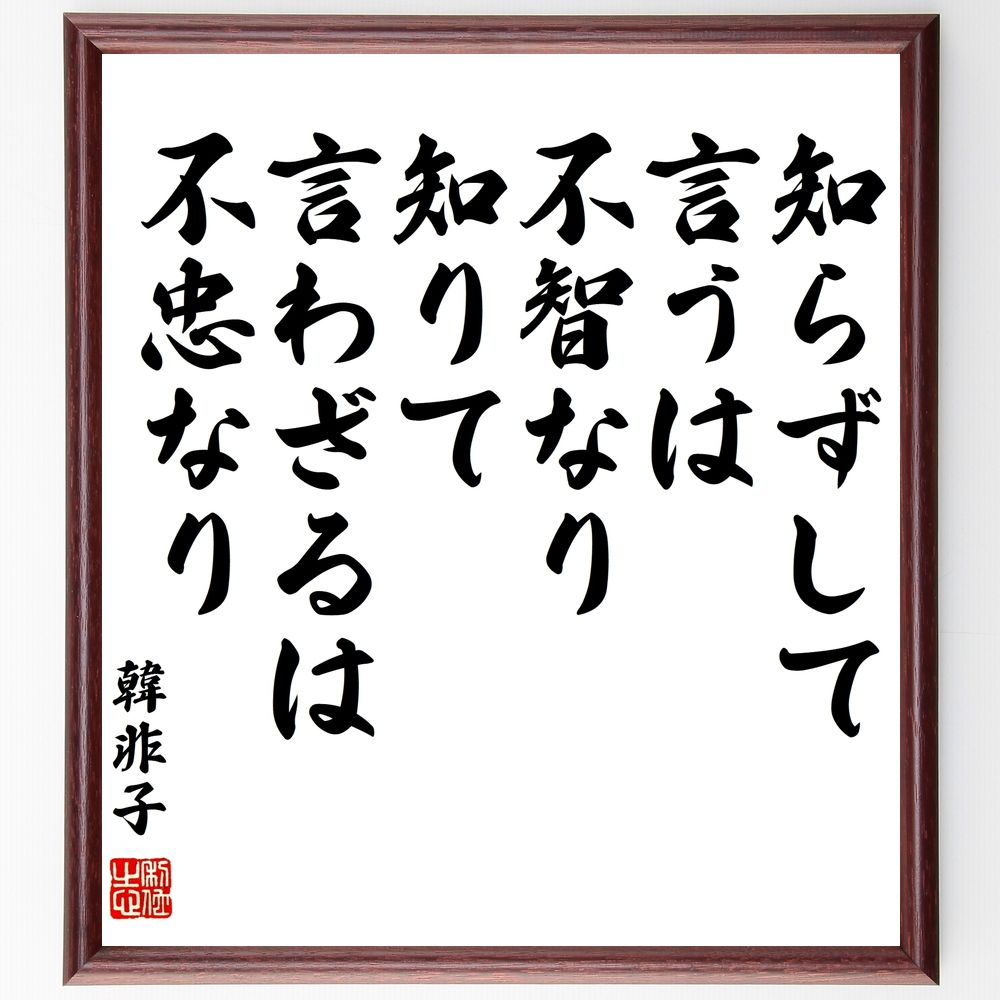 知らずして
言うは
不智なり
知りて
言わざるは
不忠なり
韓非子